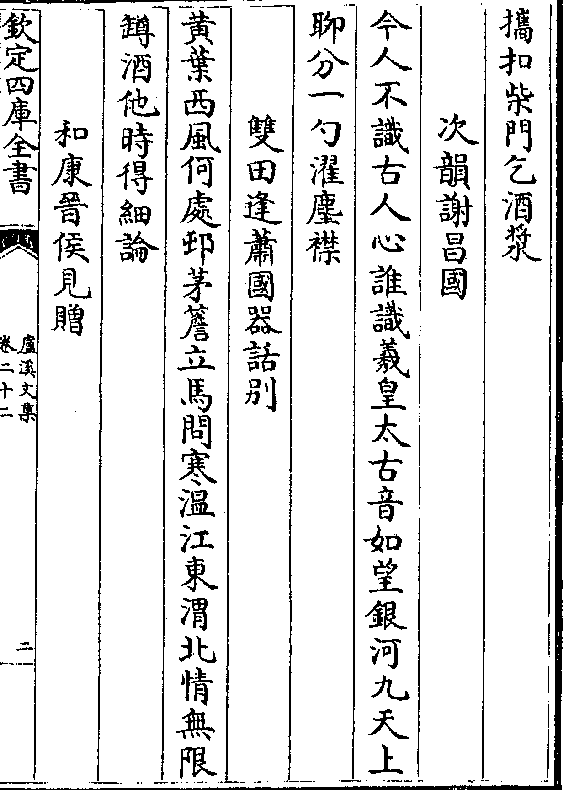 攜扣柴門乞酒漿
次韻謝昌國
今人不識古人心誰識羲皇太古音如望銀河九天上
聊分一勺濯塵襟
雙田逢蕭國器話别
黃葉西風何處邨茅簷立馬問寒溫江東渭北情無限
罇酒他時得細論
和康晉侯見贈
欽定四庫全書
盧溪文集
卷二十二
二